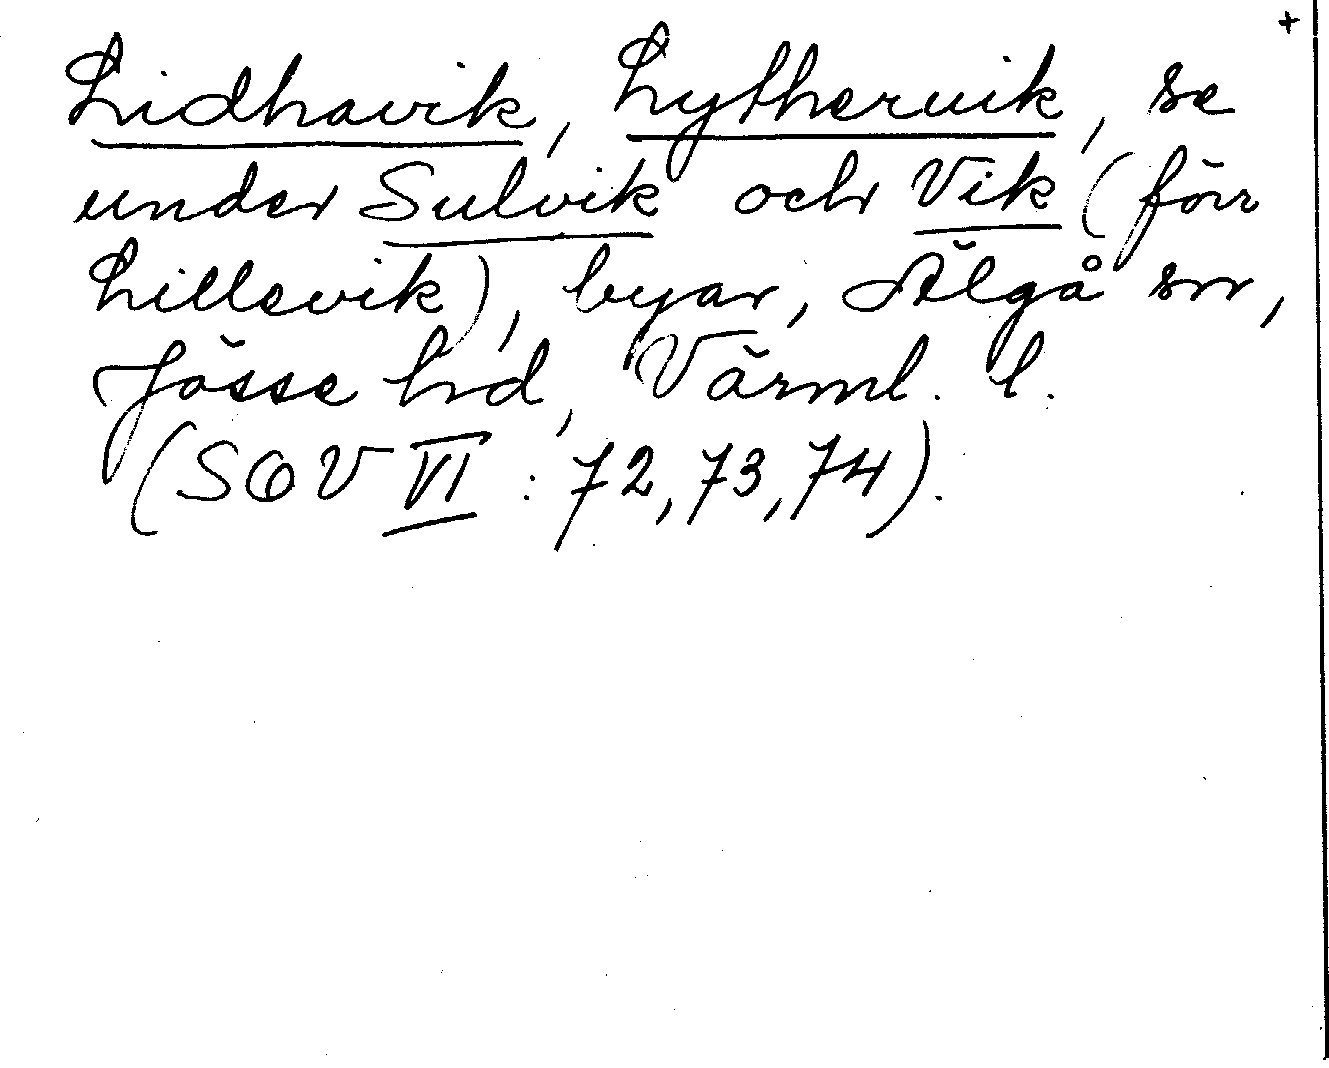 +
Lidhavik, Lythervik, se
under Sulvik och Vik (förr
Lillevik), byar, Älgå sn,
Jösse hd, Värml. l.
(SOV VI : 72, 73, 74).